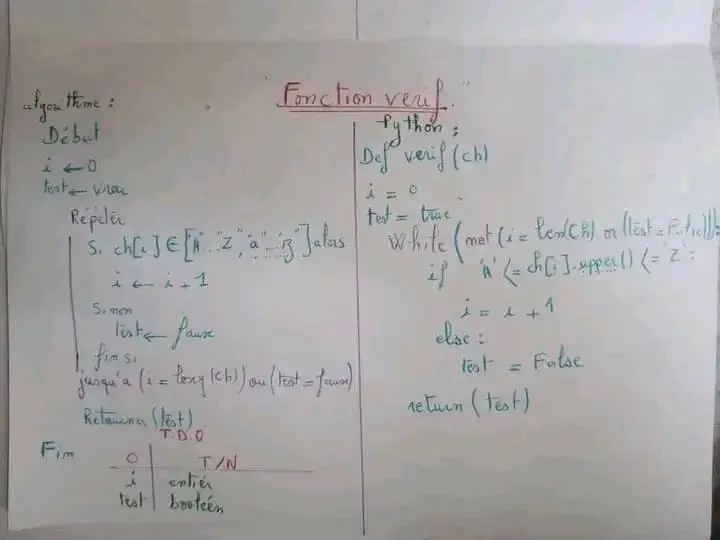 "Fonction verif"
algorithme :
Début
i ← 0
test ← vrau
Répéter
Si ch[i] ∈ ["A"..."Z","a"..."z"] alors
i ← i + 1
Sinon
test ← faux
fin si
jusqu'a (i = long(ch)) ou (test = faux)
Retourner (test)
Fin
T.D.O
O T/N
i entier
test booleén
Python :
Def verif(ch)
i = 0
test = true
While (not (i = len(ch) or (test = False)):
if 'A' <= ch[i].upper() <= 'Z' :
i = i + 1
else :
test = False
return (test)